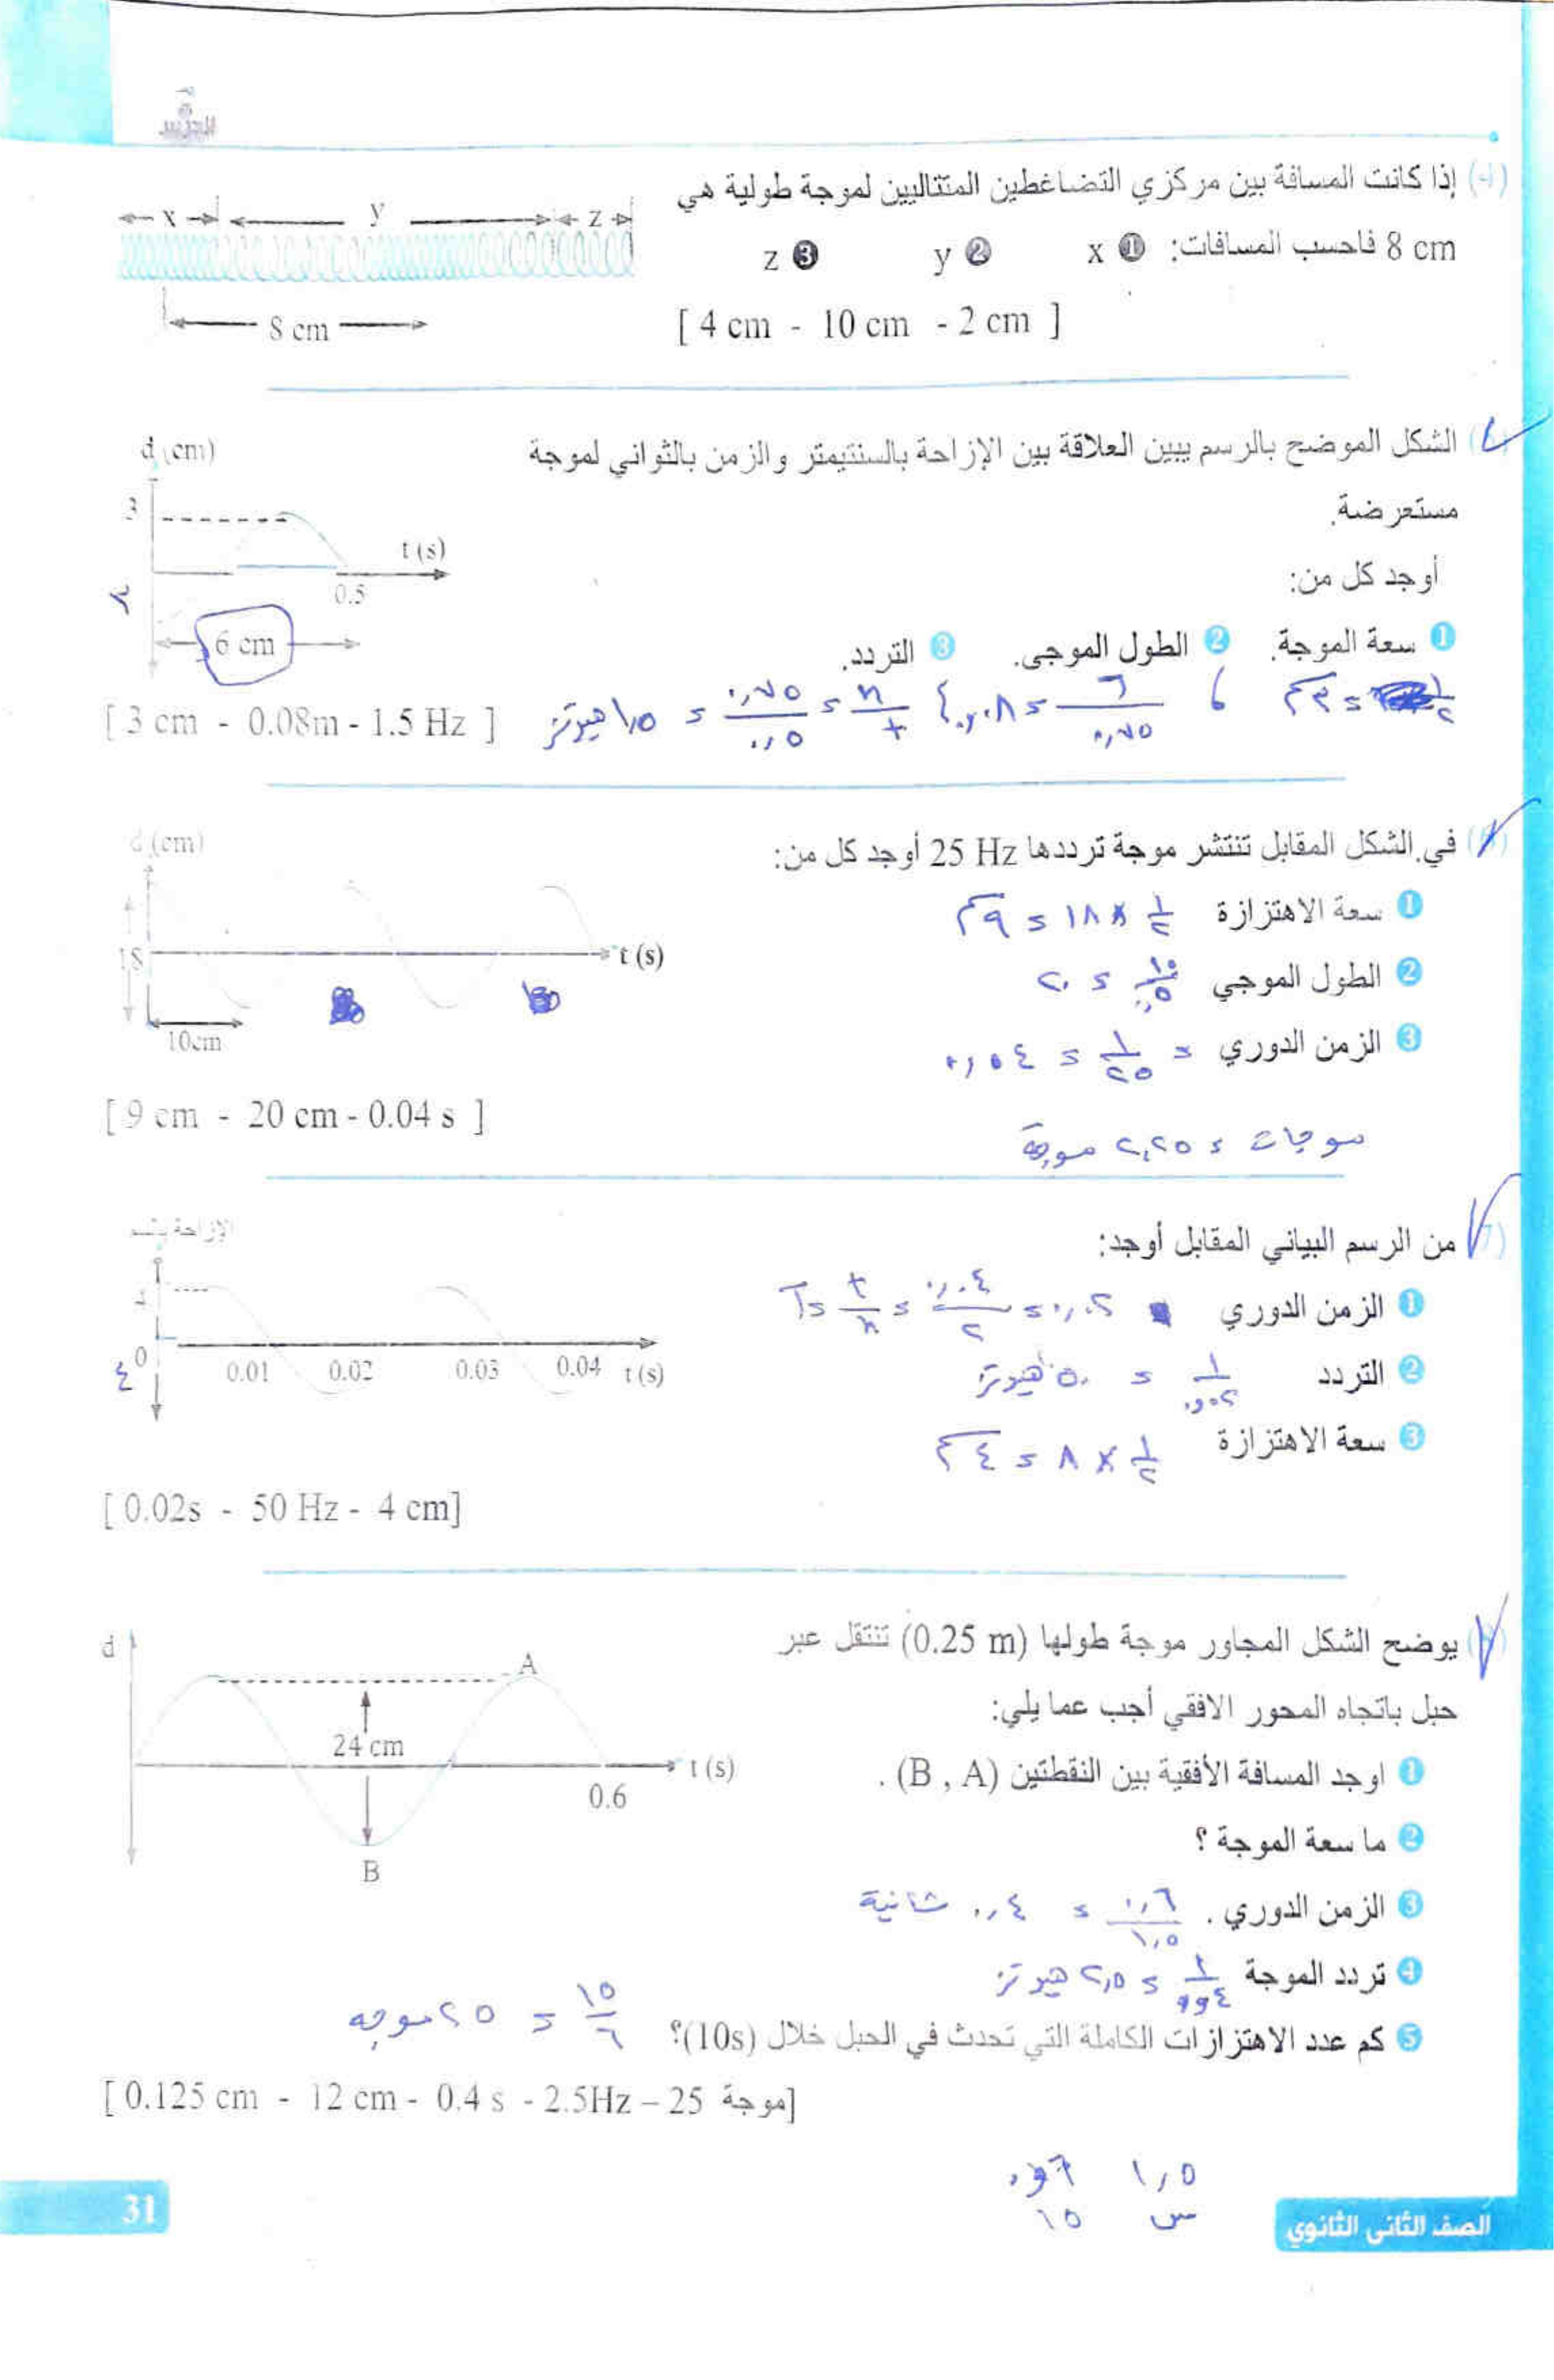 إذا كانت المسافة بين مركزي التضاغطين المتتاليين لموجة طولية هي
8 cm فاحسب المسافات: 1 x 2 y 3 z
x y z
8 cm
[ 4 cm - 10 cm - 2 cm ]
الشكل الموضح بالرسم يبين العلاقة بين الإزاحة بالسنتيمتر والزمن بالثواني لموجة
مستعرضة.
أوجد كل من:
1 سعة الموجة. 2 الطول الموجى. 3 التردد.
d (cm)
3
t (s)
0.5
6 cm
٠,٧٥
٠,٥
١,٥ هيرتز
[ 3 cm - 0.08m - 1.5 Hz ]
في الشكل المقابل تنتشر موجة ترددها 25 Hz أوجد كل من:
1 سعة الاهتزازة ١/٢ × ١٨ = ٩سم
2 الطول الموجي ١٠/٠,٥ = ٢٠
3 الزمن الدوري = ١/٢٥ = ٠,٠٤
موجات = ٢,٢٥ موجة
d (cm)
18
t (s)
10cm
[ 9 cm - 20 cm - 0.04 s ]
من الرسم البياني المقابل أوجد:
1 الزمن الدوري
2 التردد ١/٠,٠٢ = ٥٠ هيرتز
3 سعة الاهتزازة ١/٢ × ٨ = ٤سم
4
0
0.01 0.02 0.03 0.04 t (s)
٤
[ 0.02s - 50 Hz - 4 cm]
يوضح الشكل المجاور موجة طولها (0.25 m) تنتقل عبر
حبل باتجاه المحور الافقي أجب عما يلي:
1 اوجد المسافة الأفقية بين النقطتين (B , A) .
2 ما سعة الموجة ؟
3 الزمن الدوري . ٠,٦/١,٥ = ٠,٤ ثانية
4 تردد الموجة ١/٠,٤ = ٢,٥ هيرتز
5 كم عدد الاهتزازات الكاملة التي تحدث في الحبل خلال (10s)؟ = ٢٥ موجه
d
A
24 cm
t (s)
0.6
B
[ 0.125 cm - 12 cm - 0.4 s - 2.5Hz – 25 موجة]
١,٥ ٠,٦
س ١٠
31
الصف الثانى الثانوي